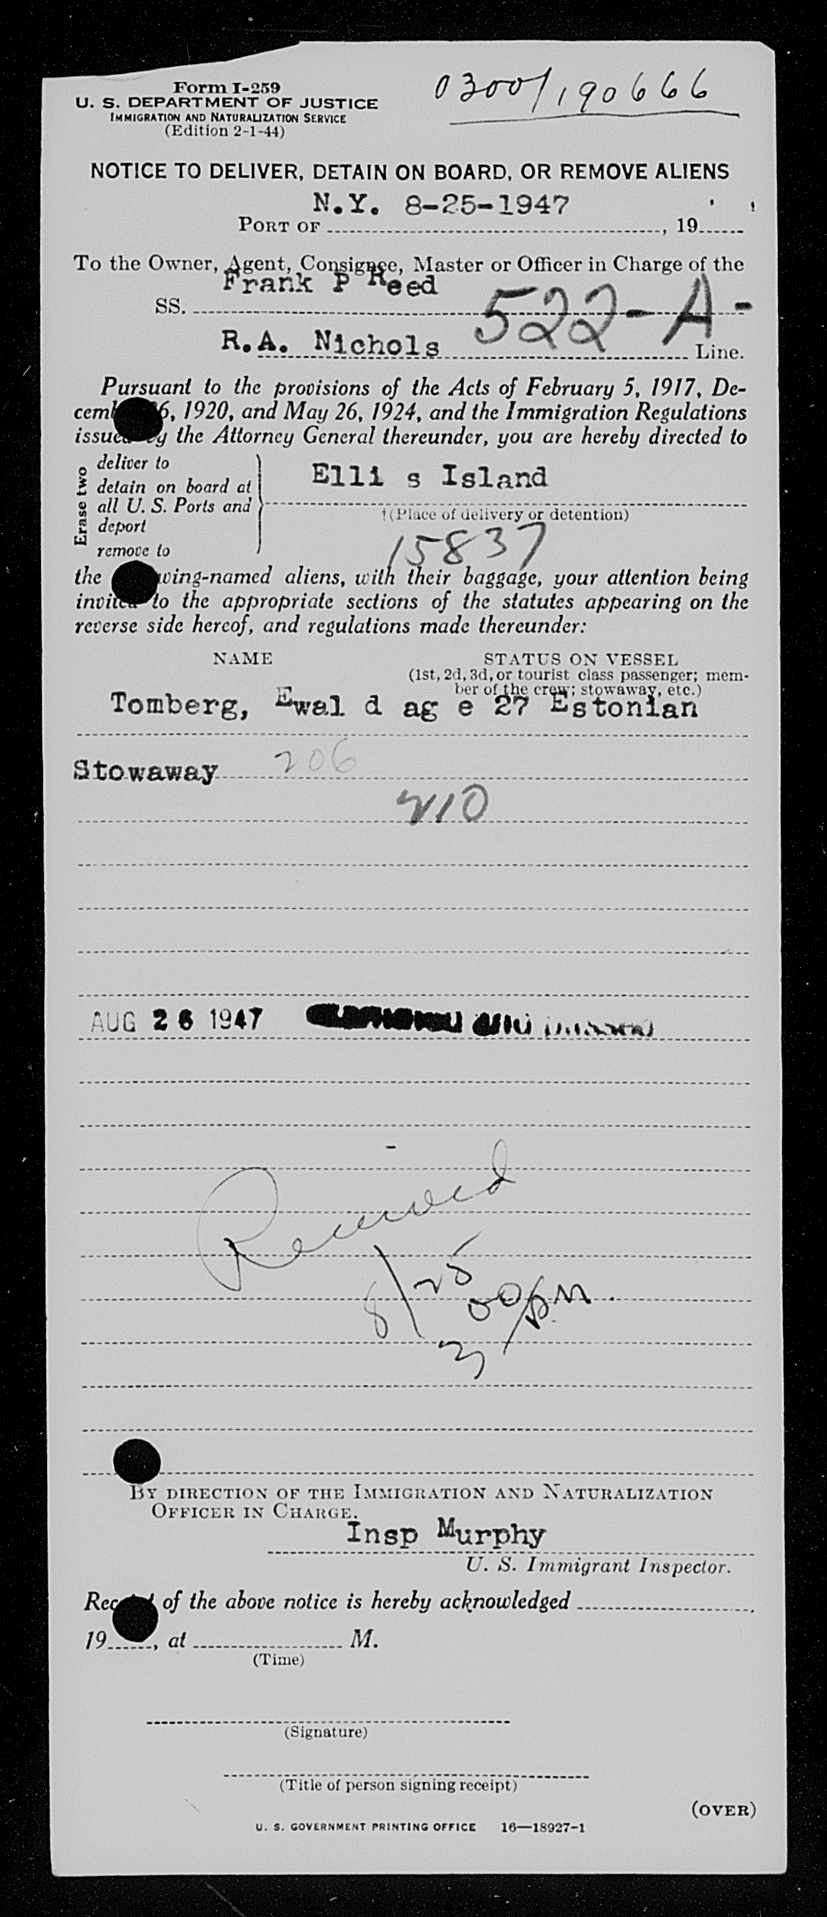 Form I-259
U. S. DEPARTMENT OF JUSTICE
IMMIGRATION AND NATURALIZATION SERVICE
(Edition 2-1-44)
0300/190666
NOTICE TO DELIVER, DETAIN ON BOARD, OR REMOVE ALIENS
N.Y. 8-25-1947
PORT OF , 19
To the Owner, Agent, Consignee, Master or Officer in Charge of the
Frank P Reed
SS. 522-A-
R.A. Nichols Line.
Pursuant to the provisions of the Acts of February 5, 1917, De-
cemb 6, 1920, and May 26, 1924, and the Immigration Regulations
issued by the Attorney General thereunder, you are hereby directed to
Erase two
deliver to
detain on board at
all U. S. Ports and
deport
remove to
Elli s Island
†(Place of delivery or detention)
15837
the wing-named aliens, with their baggage, your attention being
invited to the appropriate sections of the statutes appearing on the
reverse side hereof, and regulations made thereunder:
NAME STATUS ON VESSEL
(1st, 2d, 3d, or tourist class passenger; mem-
ber of the crew; stowaway, etc.)
Tomberg, Ewal d ag e 27 Estonian
Stowaway 206
210
AUG 26 1947
Received
8/25
3 00/pm.
BY DIRECTION OF THE IMMIGRATION AND NATURALIZATION
OFFICER IN CHARGE.
Insp Murphy
U. S. Immigrant Inspector.
Receipt of the above notice is hereby acknowledged
19 , at M.
(Time)
(Signature)
(Title of person signing receipt)
(OVER)
U. S. GOVERNMENT PRINTING OFFICE 16—18927-1